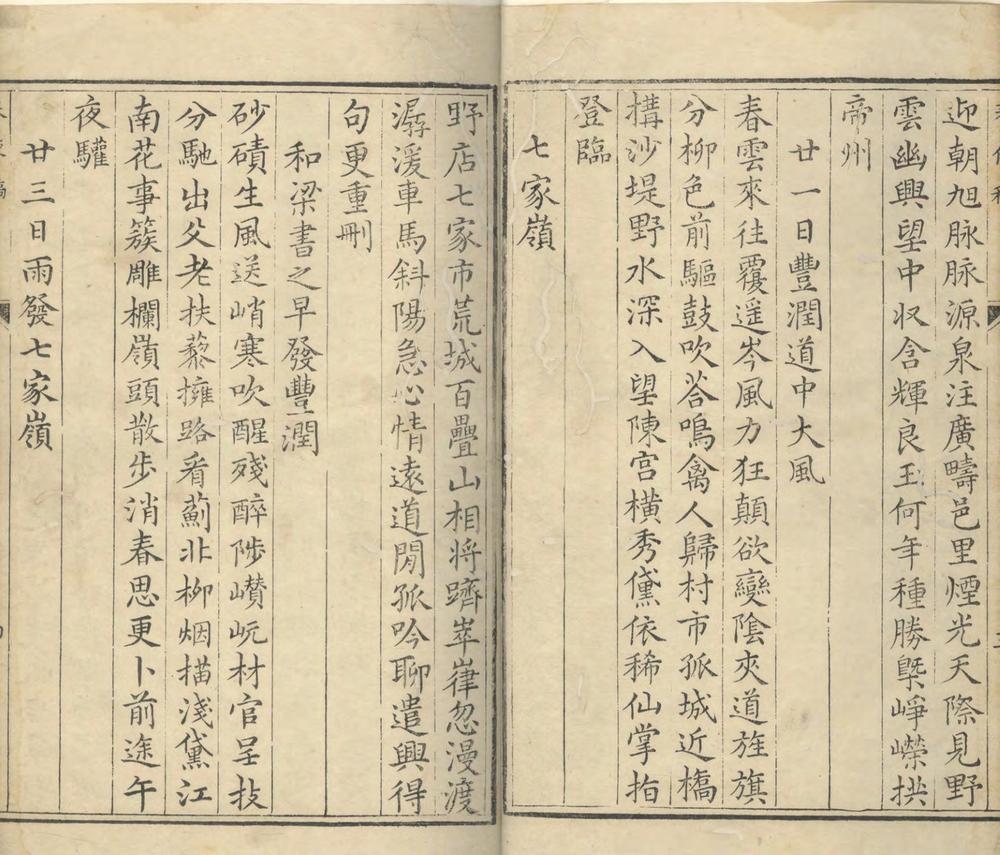 迎朝旭脉脉源泉注廣疇邑里煙光天際見野
雲幽興望中収含輝良玉何年種勝槩崢嶸拱
帝州
廿一日豐潤道中大風
春雲來往覆遥岑風力狂顛欲變陰夾道旌旗
分柳色前驅鼓吹荅鳴禽人歸村市孤城近橋
搆沙堤野水深入望陳宫橫秀黛依稀仙掌指
登臨
七家嶺
野店七家市荒城百疊山相將躋崒嵂忽漫渡
潺湲車馬斜陽急心情遠道閒孤吟聊遣興得
句更重刪
和梁書之早發豐潤
砂磧生風送峭寒吹醒殘醉陟巑岏材官呈技
分馳出父老扶藜擁路看薊北柳烟描淺黛江
南花事簇雕欄嶺頭散步消春思更卜前途午
夜驩
廿三日雨發七家嶺